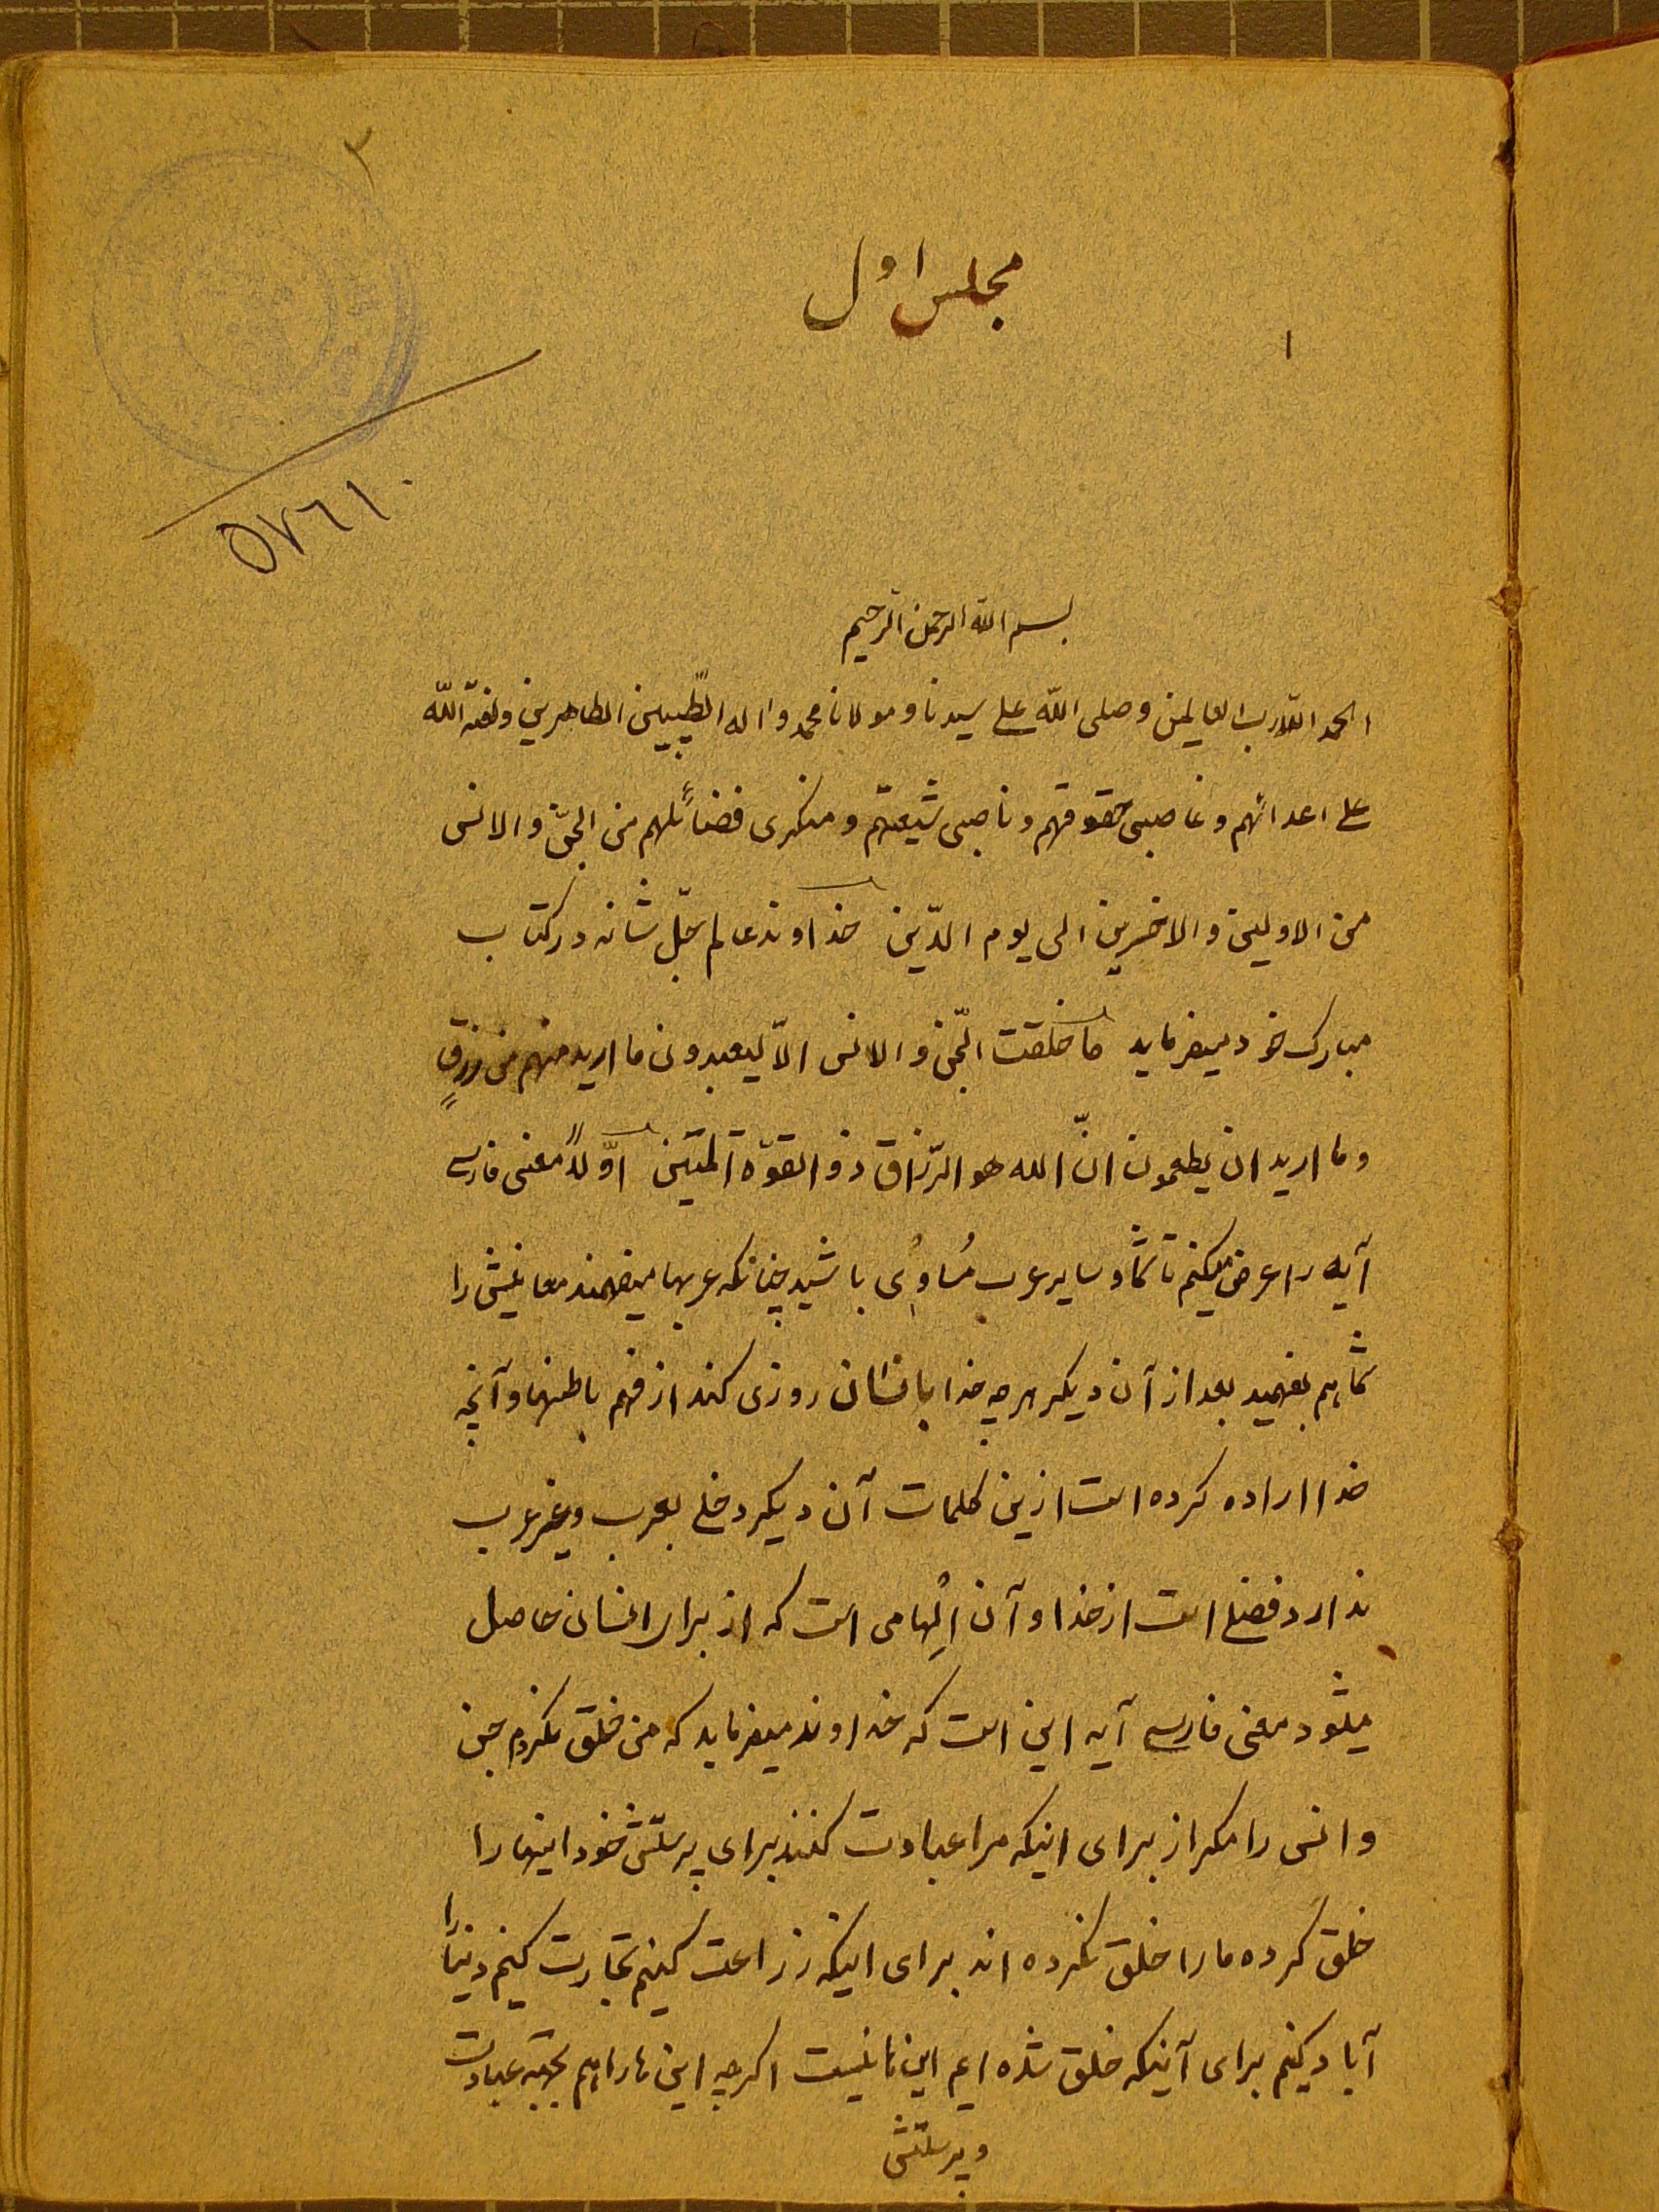 ٣
مجلس اول
١
٥٧٦١٠
بسم الله الرحمن الرحیم
الحمد لله رب العالمین و صلی الله علی سیدنا و مولانا محمد و اله الطّیبین الطاهرین و لعنة الله
علی اعدائهم و غاصبی حقوقهم و ناصبی شیعتهم و منکری فضائلهم من الجنّ و الانس
من الاولین و الاخرین الی یوم الدّین خداوند عالم جلّ شانه در کتاب
مبارک خود میفرماید ما خلقت الجّن و الانس الاّ لیعبدون ما ارید منهم من رزقٍ
و ما ارید ان یطعمون انّ الله هو الرّزاق ذو القوّة المتین اوّلاً معنی فارسی
آیه را عرض میکنم تا شما و سایر عرب مُساوِی باشید چنانکه عربها میفهمند معانیش را
شما هم بفهمید بعد از آن دیگر هر چه خدا بانسان روزی کند از فهم باطنها و آنچه
خدا اراده کرده است ازین کلمات آن دیگر دخلی بعرب و غیر عرب
ندارد فضلی است از خدا و آن اِلهامی است که از برای انسان حاصل
میشود معنی فارسی آیه این است که خداوند میفرماید که من خلق نکردم جن
و انس را مگر از برای اینکه مرا عبادت کنند برای پرستش خود اینها را
خلق کرده ما را خلق نکرده اند برای اینکه زراعت کنیم تجارت کنیم دنیا را
آباد کنیم برای آنیکه خلق شده ایم این ها نیست اگر چه این ها را هم بجهة عبادت
و پرستش